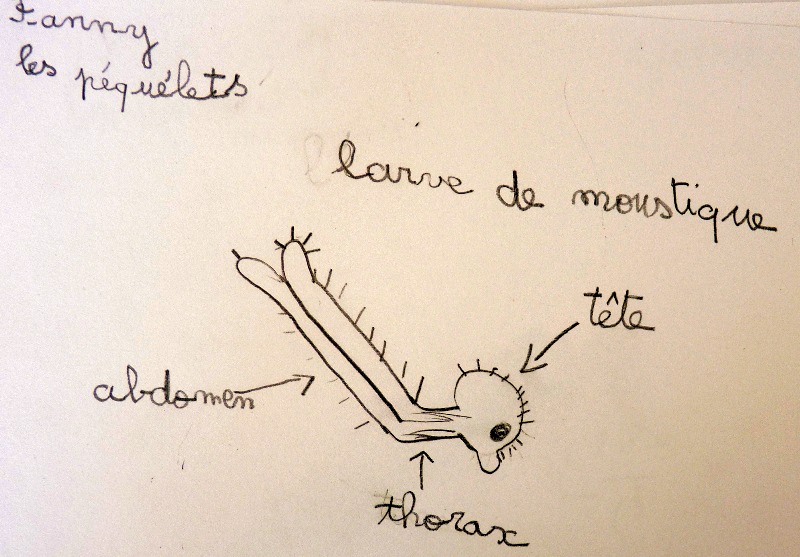 Fanny
les péquélets
larve de moustique
tête
abdomen
thorax